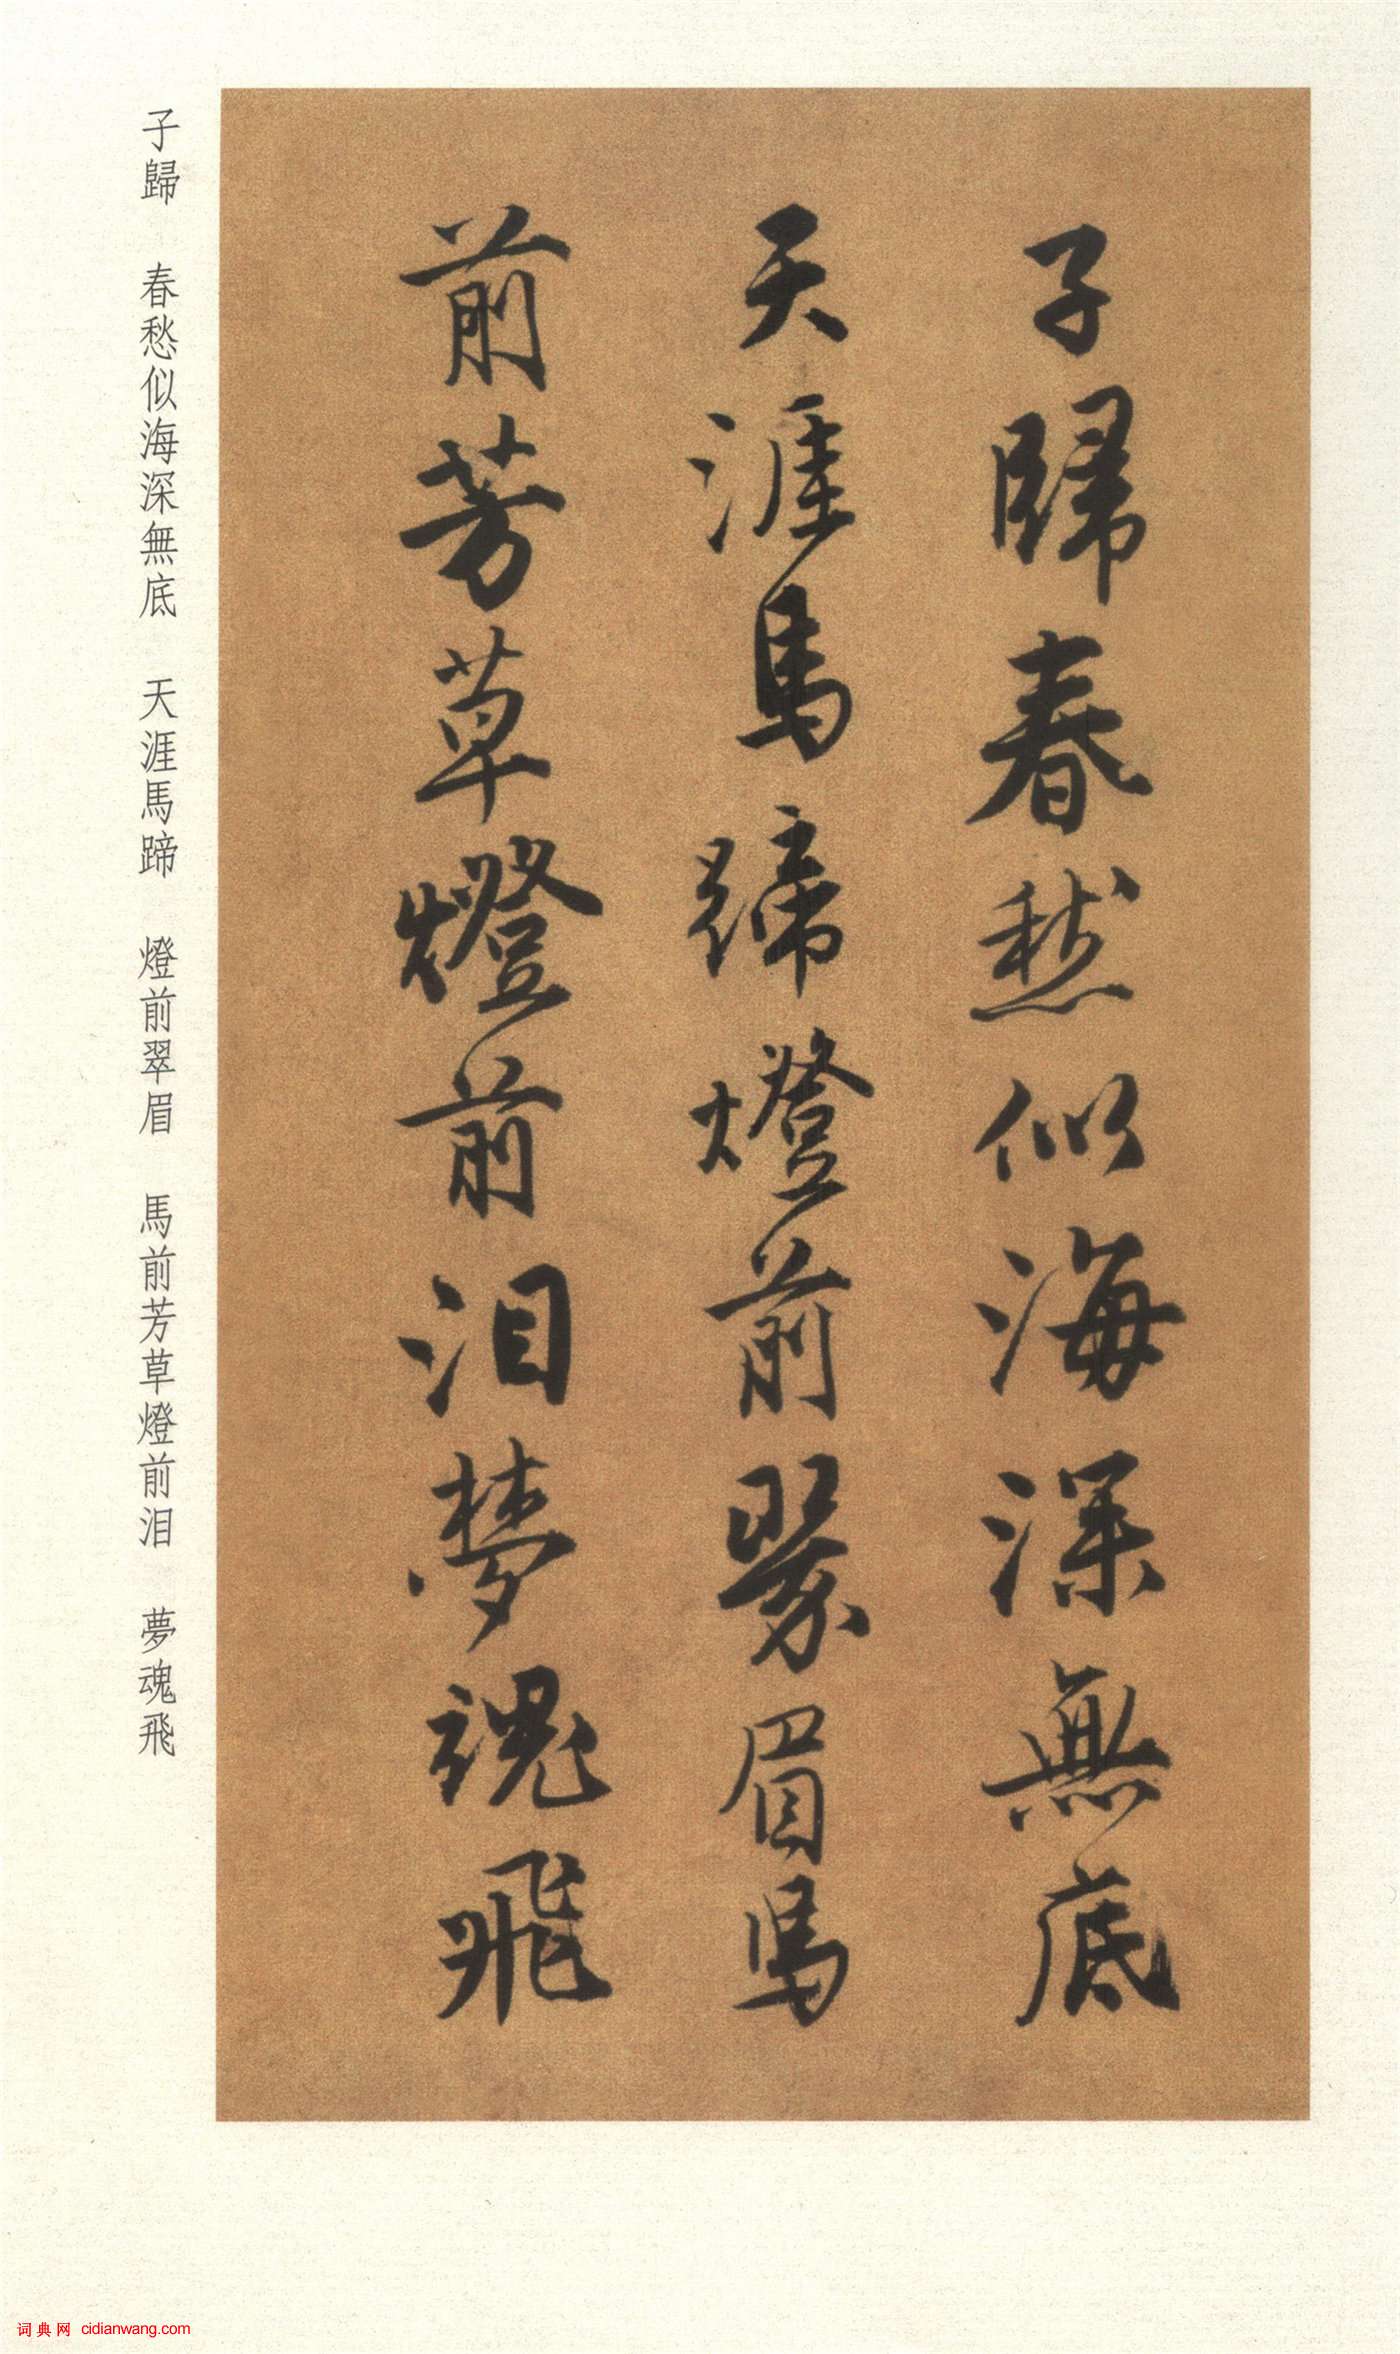 子歸春愁似海深無底
天涯馬蹄燈前翠眉馬
前芳草燈前泪夢魂飛
子歸　春愁似海深無底　天涯馬蹄　燈前翠眉　馬前芳草燈前泪　夢魂飛
词典网 cidianwang.com